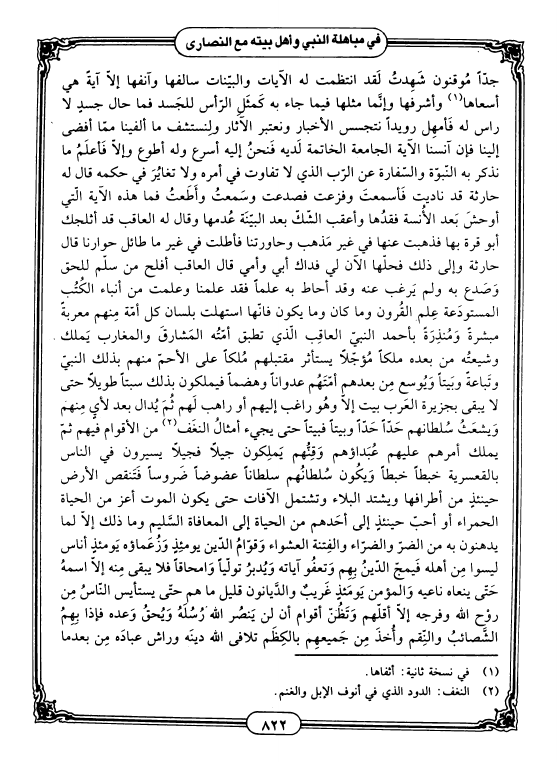 في مباهلة النبي وأهل بيته مع النصارى
جدّاً مُوقنون شَهِدتُ لَقد انتظمت له الآيات والبيّنات سالفها وآنفها إلاّ آيةً هي
أسعاها(١) وأشرفها وإنَّما مثلها فيما جاء به كَمثَلِ الرّأس للجَسد فما حال جسدٍ لا
راس له فَأمهِل رويداً نتجسس الأخبار ونعتبر الآثار ولِنستشف ما ألفينا ممّا أفضى
إلينا فإن آنسنا الآية الجامعة الخاتمة لَديه فَنحنُ إليه أسرع وله أطوع وإلاّ فَأعلَمُ ما
نذكر به النبّوة والسّفارة عن الرّب الذي لا تفاوت في أمره ولا تغايُرَ في حكمه قال له
حارثة قد ناديت فَأسمعتَ وفزعت فصدعت وسَمعتُ وأطَعتُ فما هذه الآية الّتي
أوحشَ بَعد الأُنسة فقدُها وأعقب الشّكّ بعد البيّنَة عُدمها وقال له العاقب قد أثلجك
أبو قرة بها فذهبتَ عنها في غير مَذهب وحاورتنا فأطلت في غير ما طائل حوارنا قال
حارثة وإلى ذلك فحلّها الآن لي فداك أبي وأمي قال العاقب أفلح من سلّم للحق
وَصَدع به ولم يَرغب عنه وقد أحاط به علماً فقد علمنا وعلمت من أنباء الكُتُب
المستودَعة عِلم القُرون وما كان وما يكون فانّها استهلت بلسان كل أمّة مِنهم معربةً
مبشرةً وَمُنذِرَةً بأحمد النبيّ العاقِب الّذي تطبق أمّتُه المَشارقَ والمغارب يَملك
وشيعتُه من بعده ملكاً مُؤجّلاً يستأثر مقتبلهم مُلكاً على الأحمّ منهم بذلك النبيّ
وتَباعةً وبَيتاً وَيُوسع مِن بعدهم أمّتَهُم عدواناً وهضماً فيملكون بذلك سبتاً طويلاً حتى
لا يبقى بجزيرة العَرب بيت إلاّ وهُو راغب إليهم أو راهب لَهم ثُمّ يُدال بعد لأيٍ مِنهم
وَيشعَثُ سُلطانهم حَدّاً حَدّاً وبيتاً فبيتاً حتى يجيء أمثالُ النغَف(٢) من الأقوام فيهم ثمّ
يملك أمرهم عليهم عُبَداؤهم وَقِنُّهم يَملِكون جيلاً فجيلاً يسيرون في الناس
بالقعسرية خبطاً خبطاً وَيكُون سُلطانُهم سلطاناً عضوضاً ضَروساً فَتَنقص الأرض
حينئذٍ من أطرافها ويشتد البلاء وتشتمل الآفات حتى يكون الموت أعز من الحياة
الحمراء أو أحبّ حينئذٍ إلى أحَدهم من الحياة إلى المعافاة السَّليم وما ذلك إلاّ لما
يدهنون به من الضرّ والضرّاء والفِتنة العشواء وَقوّامُ الدّين يومئِذٍ وَزُعماؤه يَومئذٍ أناس
ليسوا مِن أهله فَيمجّ الدّينُ بِهم وَتعفُو آياته وَيُدبرُ تولّياً وَامحاقاً فلا يبقى مِنه إلاّ اسمهُ
حَتّى ينعاه ناعيه وَالمؤمن يَومَئذٍ غَريبٌ والدَّيانون قليل ما هم حتّى يستأيس النّاسُ مِن
روْح الله وفرجه إلاّ أقلّهم وَتَظُنّ أقوام أن لن يَنصُر الله رُسُلَهُ وَيُحقُ وَعده فإذا بِهِمُ
الشَّصائبُ والنِّقم وأُخذَ مِن جَميعهِم بالكِظَم تلافى الله دينَه وراش عبادَه مِن بعدما
(١) في نسخة ثانية: أثفاها.
(٢) النغف: الدود الذي في أنوف الإبل والغنم.
٨٢٢